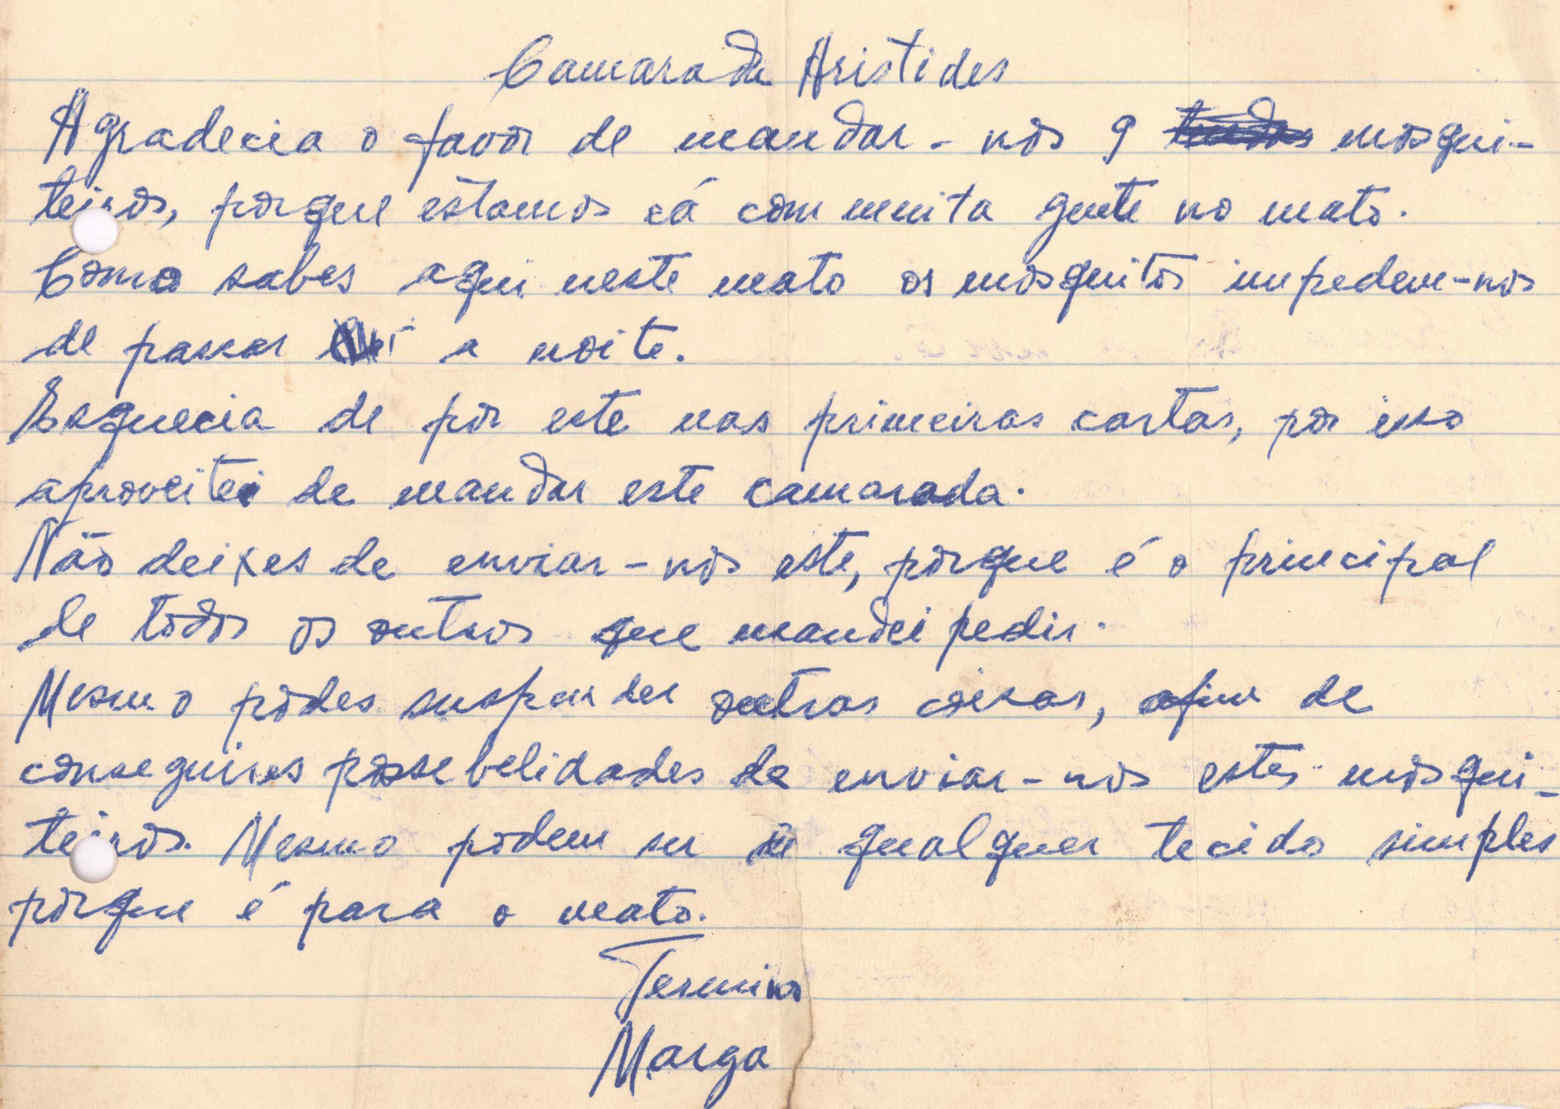 Camarada Aristides
Agradecia o favor de mandar-nos 9 mosqui-
teiros, porque estamos cá com muita gente no mato.
Como sabes aqui neste mato os mosquitos impedem-nos
de passar a noite.
Esquecia de pôr este nas primeiras cartas, por isso
aproveitei de mandar este camarada.
Não deixes de enviar-nos este, porque é o principal
de todos os outros que mandei pedir.
Mesmo podes suspender outras coisas, afim de
conseguires possebelidades de enviar-nos estes mosqui-
teiros. Mesmo podem ser qualquer tecido simples
porque é para o mato.
Termino
Marga